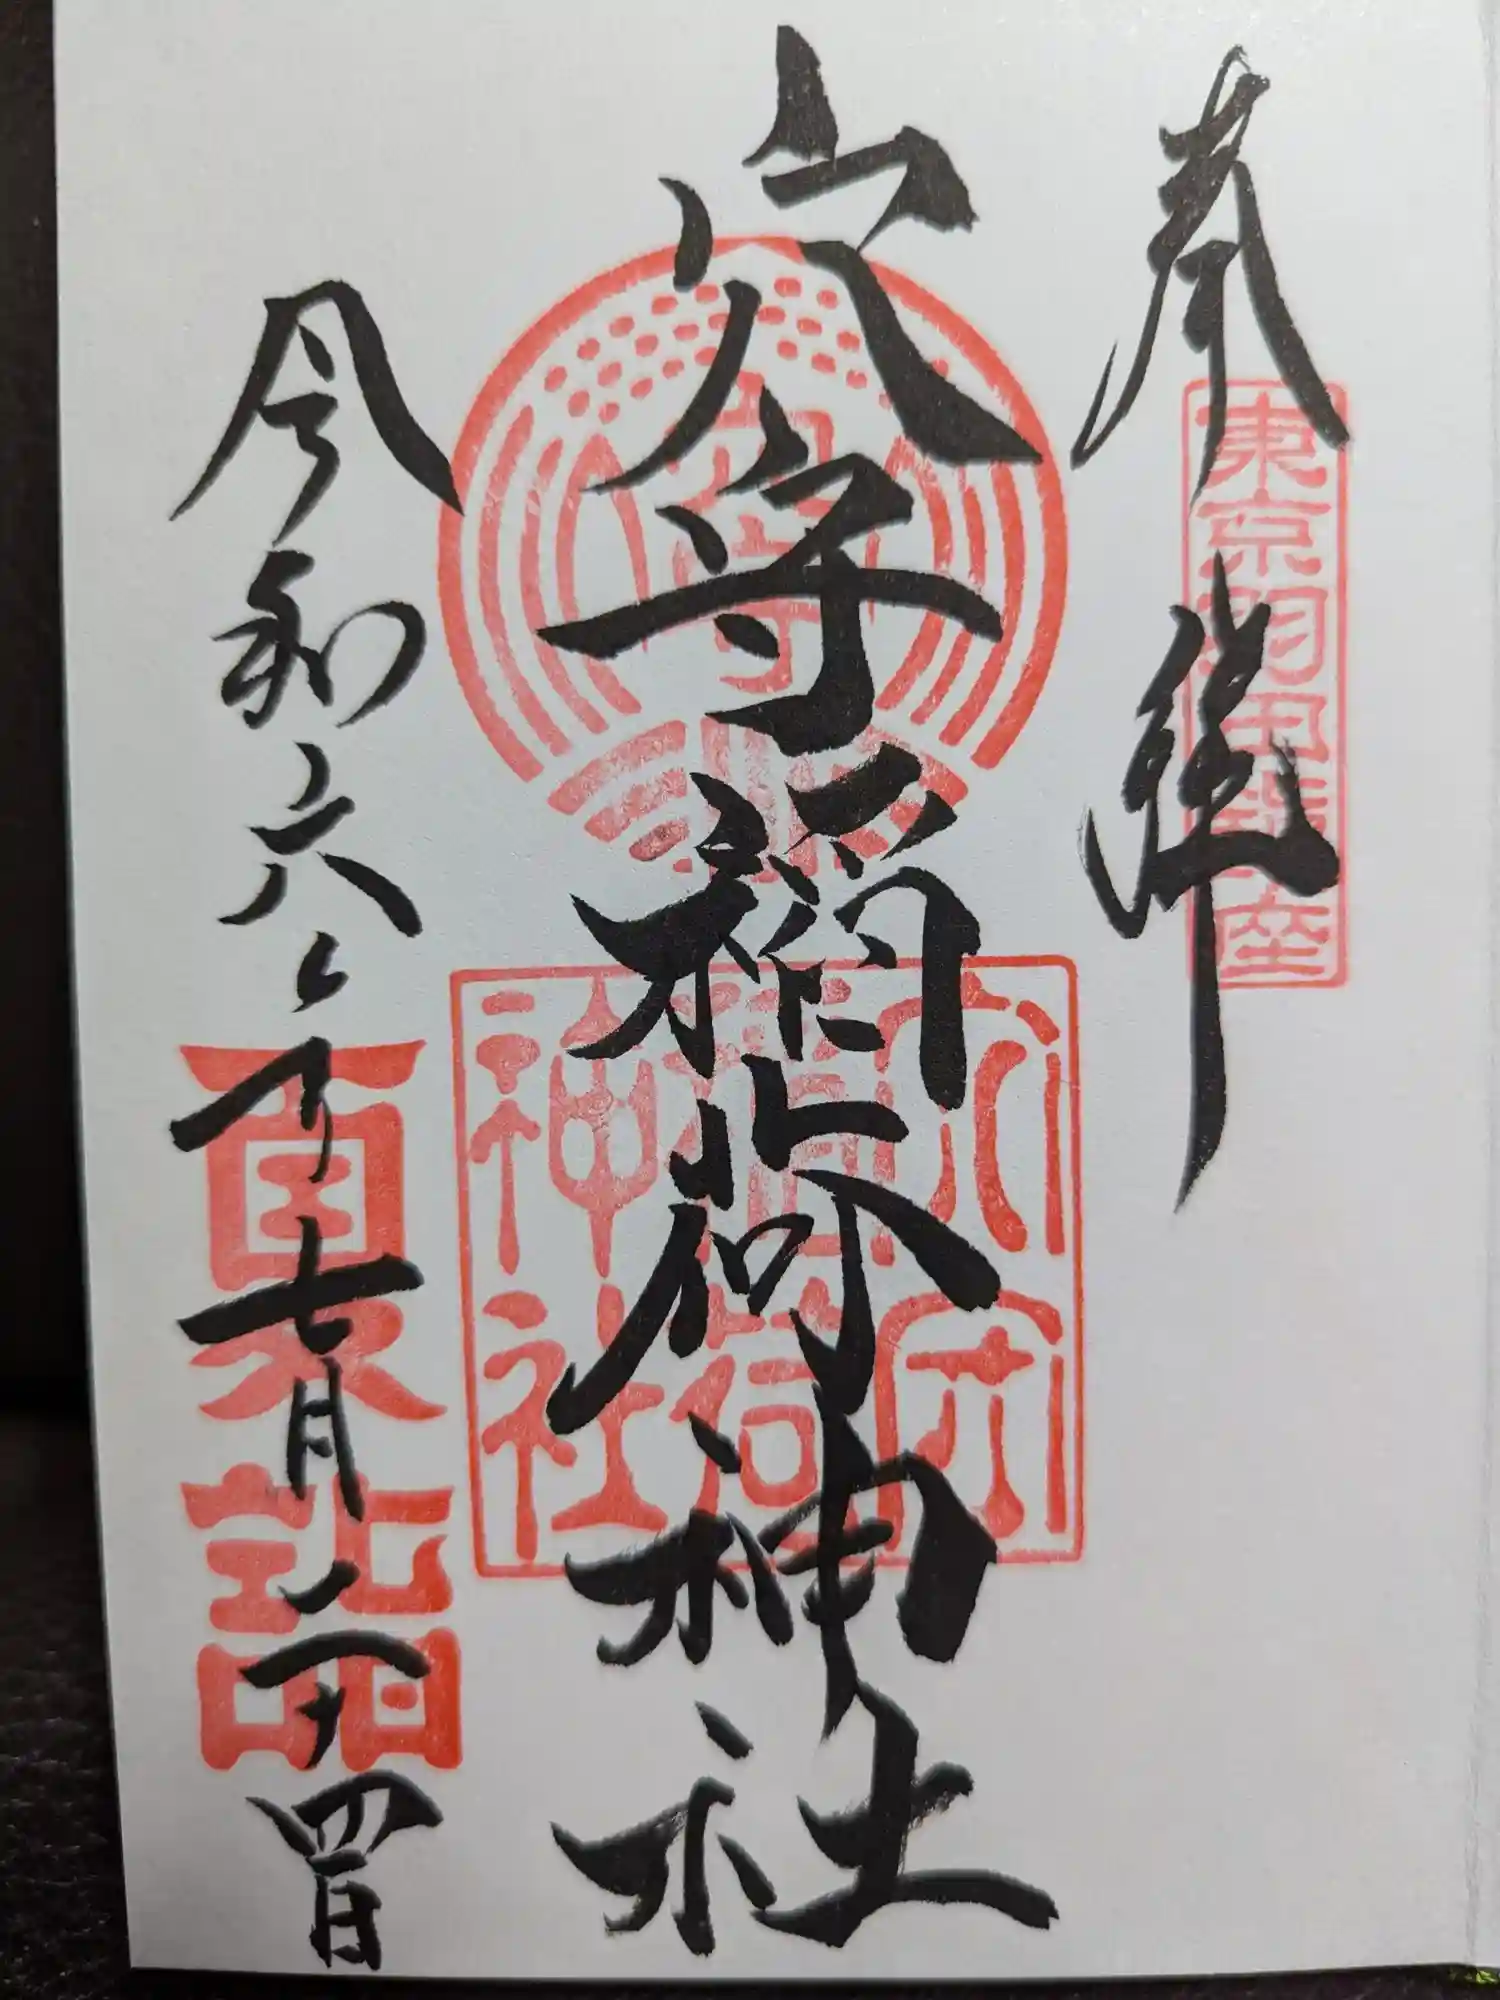 奉拝
東京羽田鎮座
穴守稲荷神社
穴守
穴守
稲荷
神社
令和六年七月二十四日
夏詣